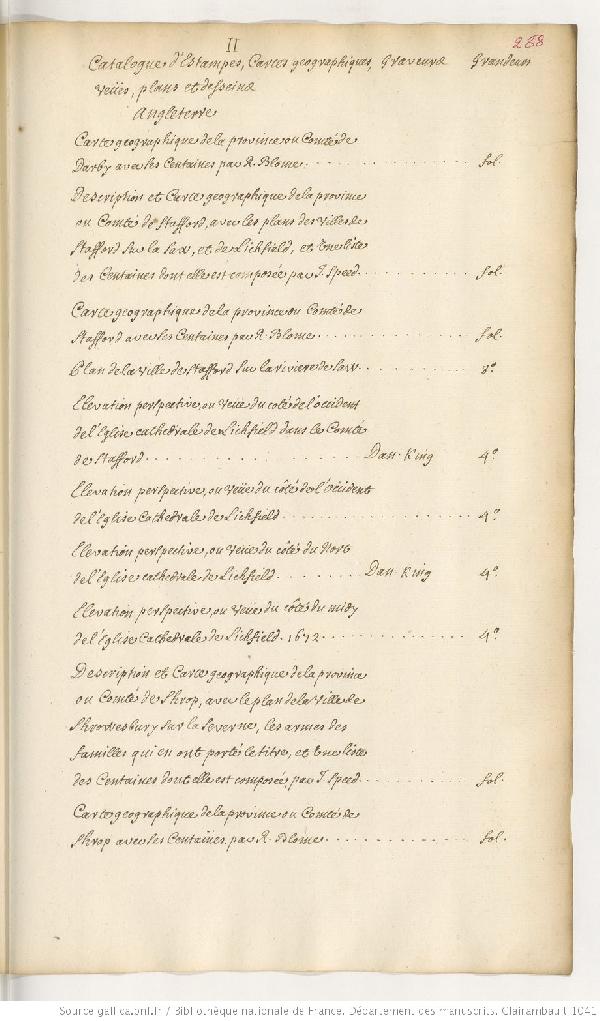 II
288
Catalogue d'Estampes, Cartes geographiques, Graveurs Grandeurs
Veües, plans et desseins
Angleterre
Carte geographique de la province ou Comté de
Darby avec les Centaines par R. Blome. fol.
Description et Carte geographique de la province
ou Comté de Stafford, avec les plans des Villes de
Stafford sur la Saw, et de Lichfield, et une liste
des Centaines dont elle est composée par J. Speed. fol.
Carte geographique de la province ou Comté de
Stafford avec les Centaines par R. Blome. fol.
Plan de la Ville de Stafford sur la riviere de Saw. 8º
Elevation perspective, ou Veüe du coté de l'occident
de l'Eglise cathedrale de Lichfield dans le Comté
de Stafford. Dan. King 4º
Elevation perspective, ou Veüe du côté de l'Occident
de l'Eglise Cathedrale de Lichfield. 4º
Elevation perspective, ou Veüe du côté du Nort
de l'Eglise cathedrale de Lichfield. Dan. King 4º
Elevation perspective, ou Veüe du côté du midy
de l'Eglise Cathedrale de Lichfield. 1672 4º
Description et Carte geographique de la province
ou Comté de Shrop, avec le plan de la Ville de
Shrowesbury sur la Severne, les armes des
familles qui en ont porté le titre, et une liste
des Centaines dont elle est composée, par J. Speed. fol.
Carte geographique de la province ou Comté de
Shrop avec les Centaines par R. Blome. fol.
Source gallica.bnf.fr / Bibliothèque nationale de France. Département des manuscrits. Clairambault 1041